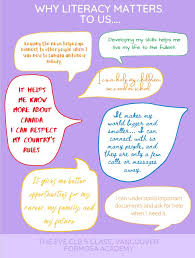 WHY LITERACY MATTERS
TO US....
Developing my skills helps me
live my life to the fullest.
IT HELPS
ME KNOW
MORE ABOUT
CANADA.
I CAN RESPECT
MY COUNTRY'S
RULES
I can help my children
It makes my
world bigger and
smaller... I can
connect with so
many people, and
they are only a few
calls or messages
away.
It gives me better
opportunities for my
career, my family, and
my future
I can understand important
documents and ask for help
when I need it.
THE EVE CLB 5 CLASS, VANCOUVER
FORMOSA ACADEMY